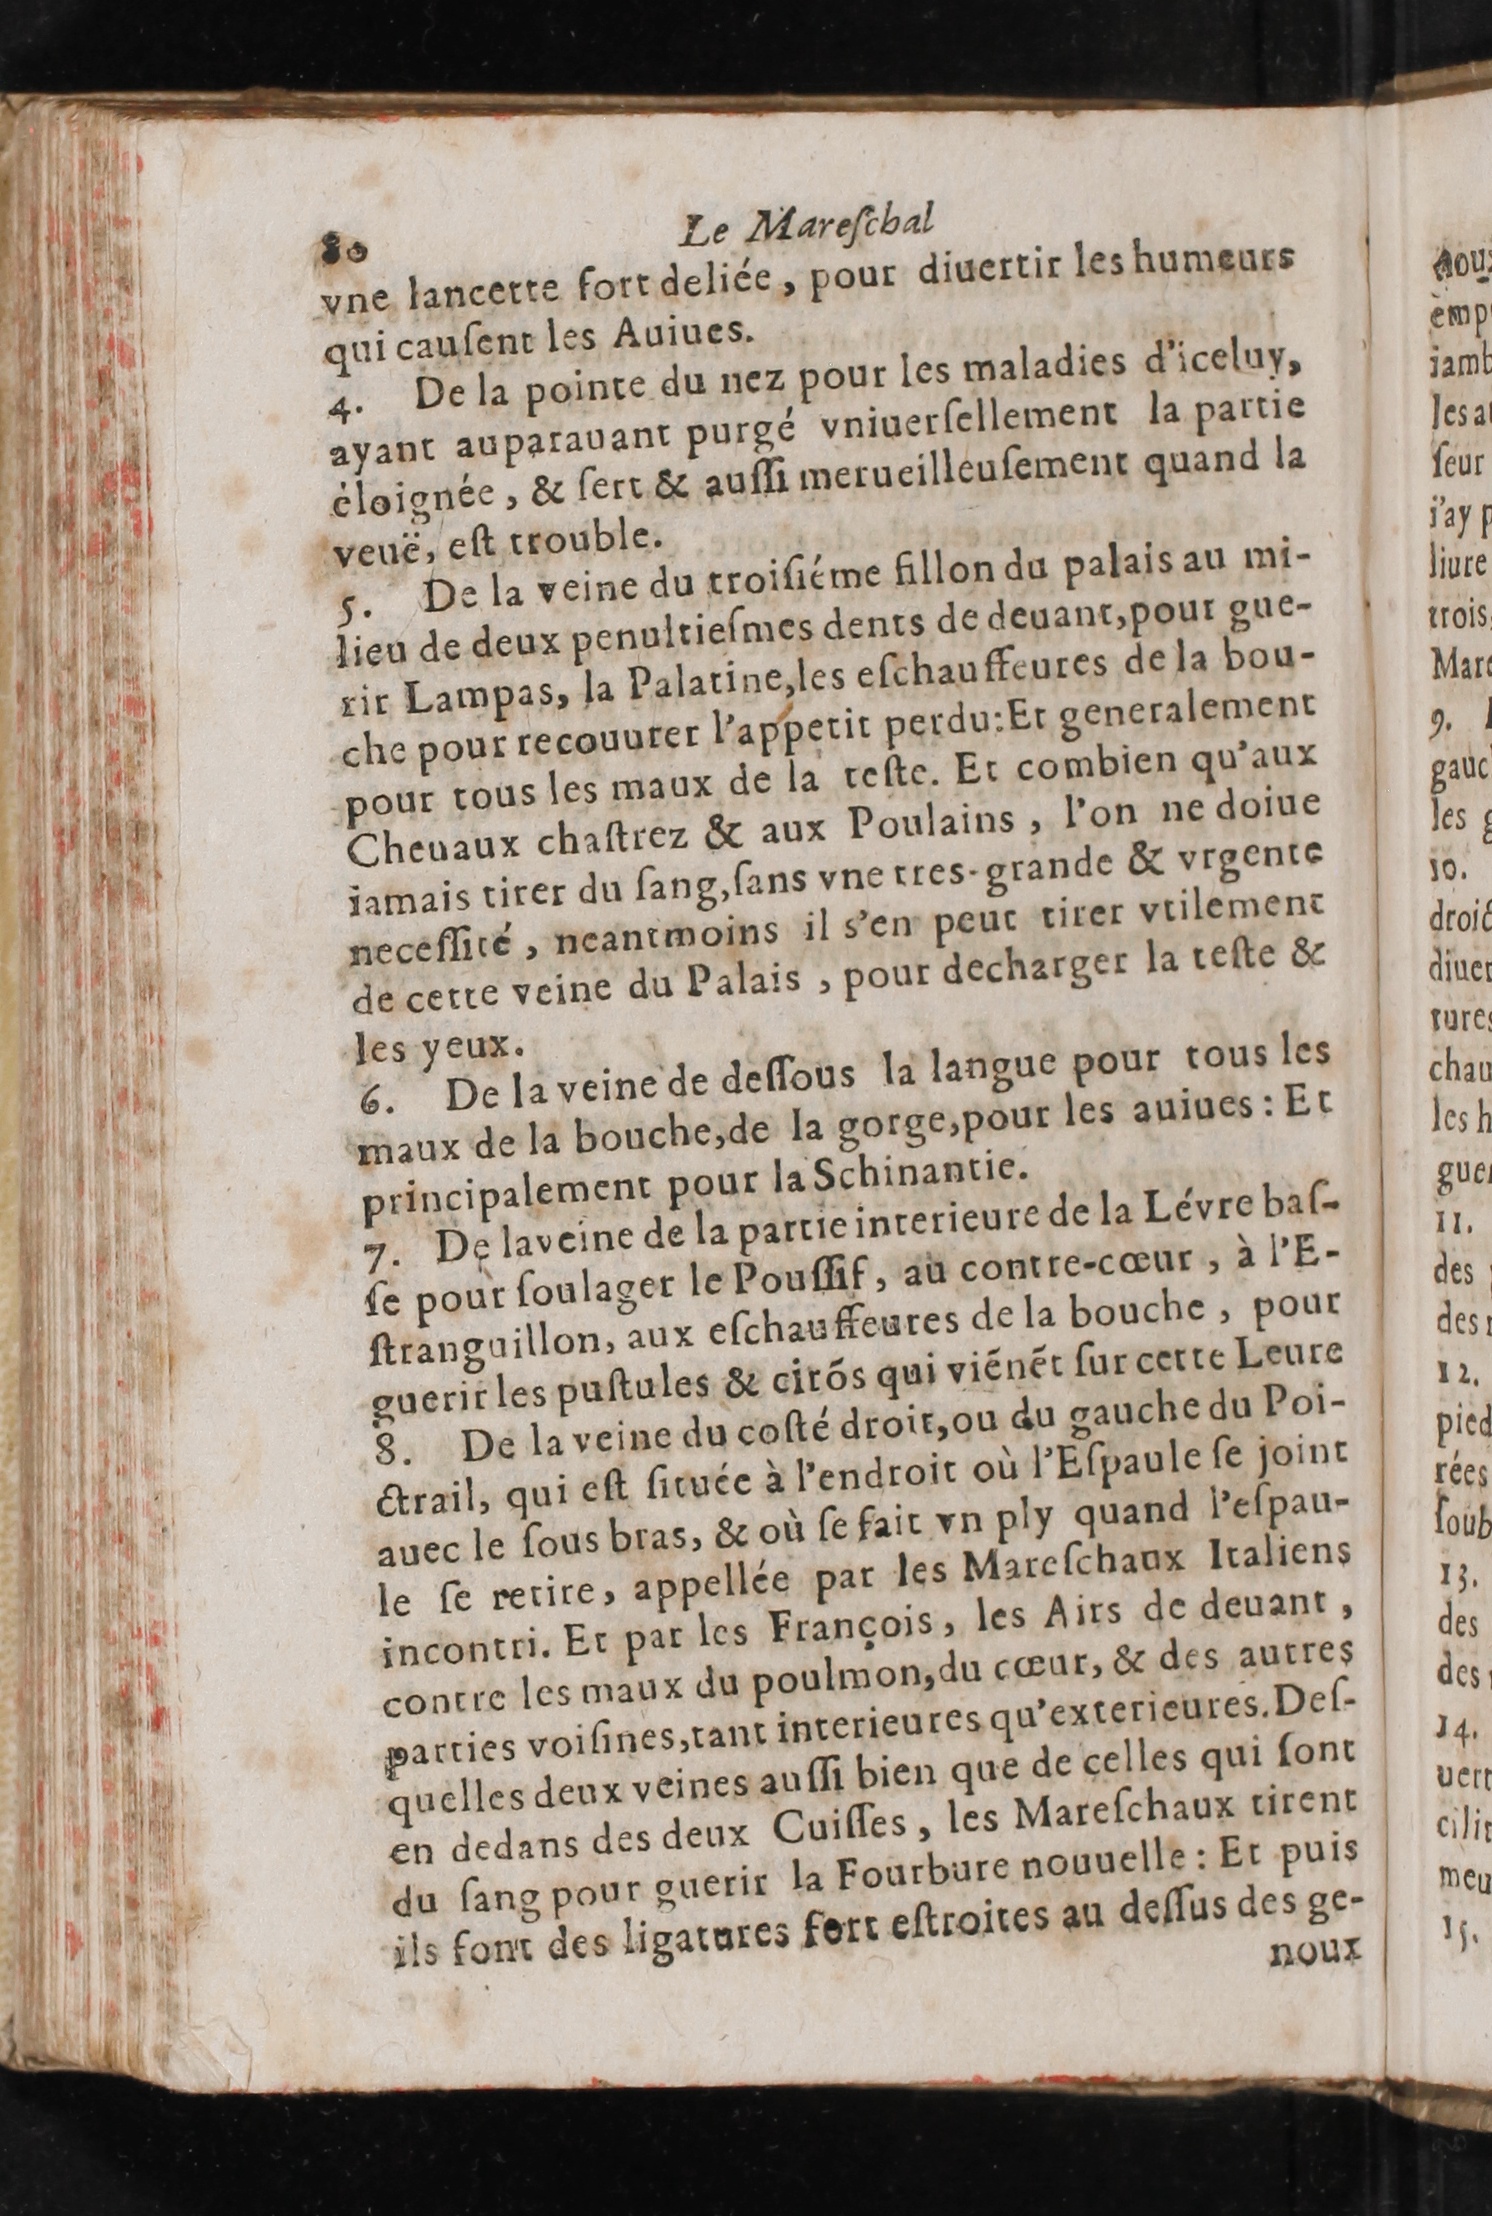 80 Le Mareſchal
vne lancette fort deliée, pour diuertir les humeurs
qui cauſent les Auiues.
4. De la pointe du nez pour les maladies d'iceluy,
ayant auparauant purgé vniuerſellement la partie
éloignée, & ſert & auſſi merueilleuſement quand la
veuë, eſt trouble.
5. De la veine du troiſiéme ſillon du palais au mi-
lieu de deux penultieſmes dents de deuant, pour gue-
rir Lampas, la Palatine, les eſchauffeures de la bou-
che pour recouurer l'appetit perdu: Et generalement
pour tous les maux de la teſte. Et combien qu'aux
Cheuaux chaſtrez & aux Poulains, l'on ne doiue
iamais tirer du ſang, ſans vne tres-grande & vrgente
neceſſité, neantmoins il s'en peut tirer vtilement
de cette veine du Palais, pour decharger la teſte &
les yeux.
6. De la veine de deſſous la langue pour tous les
maux de la bouche, de la gorge, pour les auiues: Et
principalement pour la Schinantie.
7. De la veine de la partie interieure de la Lévre baſ-
ſe pour ſoulager le Pouſſif, au contre-cœur, à l'E-
ſtranguillon, aux eſchauffeures de la bouche, pour
guerir les puſtules & citõs qui viẽnẽt ſur cette Leure
8. De la veine du coſté droit, ou du gauche du Poi-
ctrail, qui eſt ſituée à l'endroit où l'Eſpaule ſe joint
auec le ſous bras, & où ſe fait vn ply quand l'eſpau-
le ſe retire, appellée par les Mareſchaux Italiens
incontri. Et par les François, les Airs de deuant,
contre les maux du poulmon, du cœur, & des autres
parties voiſines, tant interieures qu'exterieures. Deſ-
quelles deux veines auſſi bien que de celles qui ſont
en dedans des deux Cuiſſes, les Mareſchaux tirent
du ſang pour guerir la Fourbure nouuelle: Et puis
ils font des ligatures fort eſtroites au deſſus des ge-
noux
9.
les
10.
11.
des
12.
13.
des
14.
15.